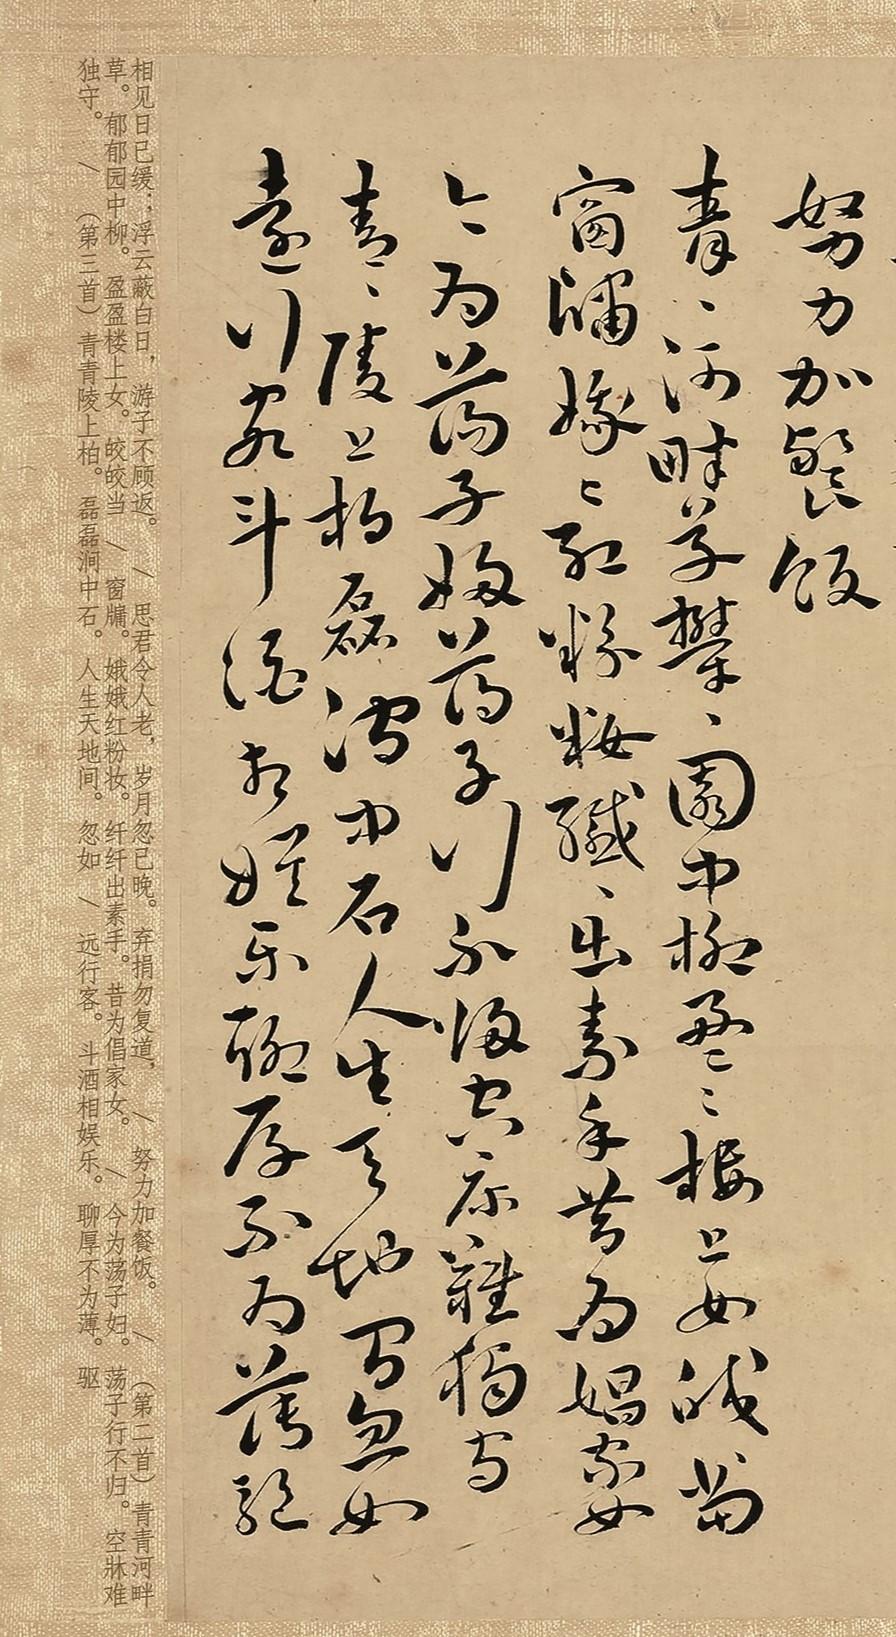 努力加餐飯
青〻河畔草鬱〻園中柳盈〻樓上女皎當
窗牖娥〻紅粉粧纖〻出素手昔為娼家女
今為蕩子婦蕩子行不歸空床難獨守
青〻陵上柏磊磵中石人生天地間忽如
遠行客斗酒相娛樂聊厚不為薄驅
相见日已缓；浮云蔽白日，游子不顾返。 / 思君令人老，岁月忽已晚。弃捐勿复道， / 努力加餐饭。 / （第二首）青青河畔
草。郁郁园中柳。盈盈楼上女。皎皎当 / 窗牖。娥娥红粉妆。纤纤出素手。昔为倡家女。 / 今为荡子妇。荡子行不归。空牀难
独守。 / （第三首）青青陵上柏。磊磊涧中石。人生天地间。忽如 / 远行客。斗酒相娱乐。聊厚不为薄。驱